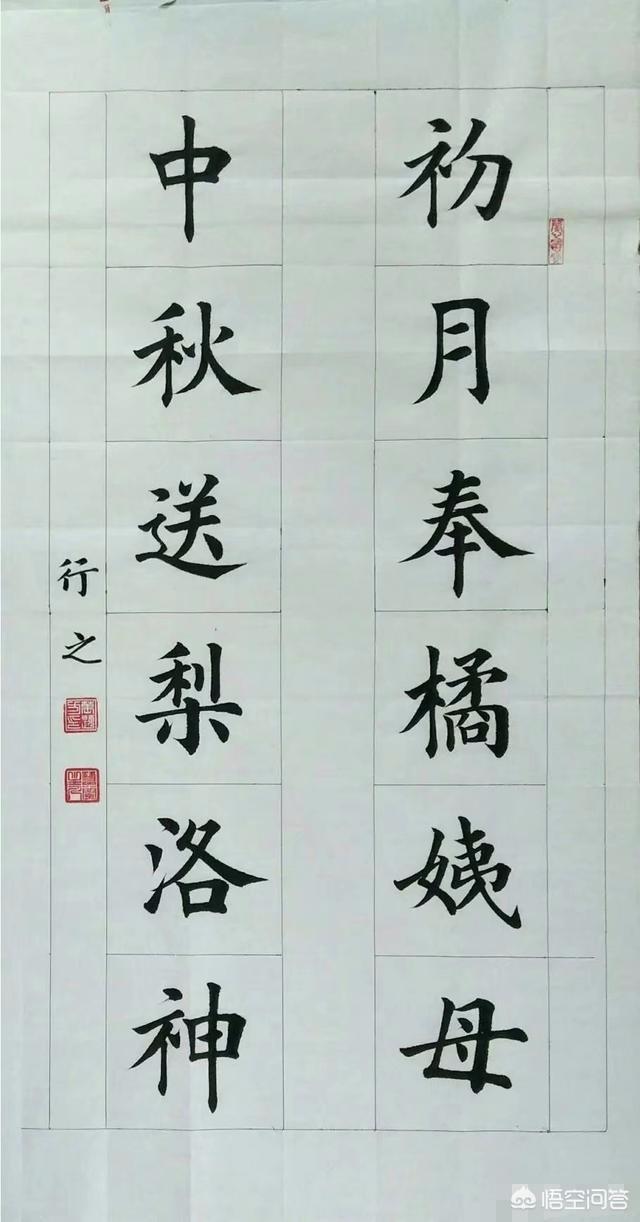 初月奉橘姨母
中秋送梨洛神
行之
悟空问答